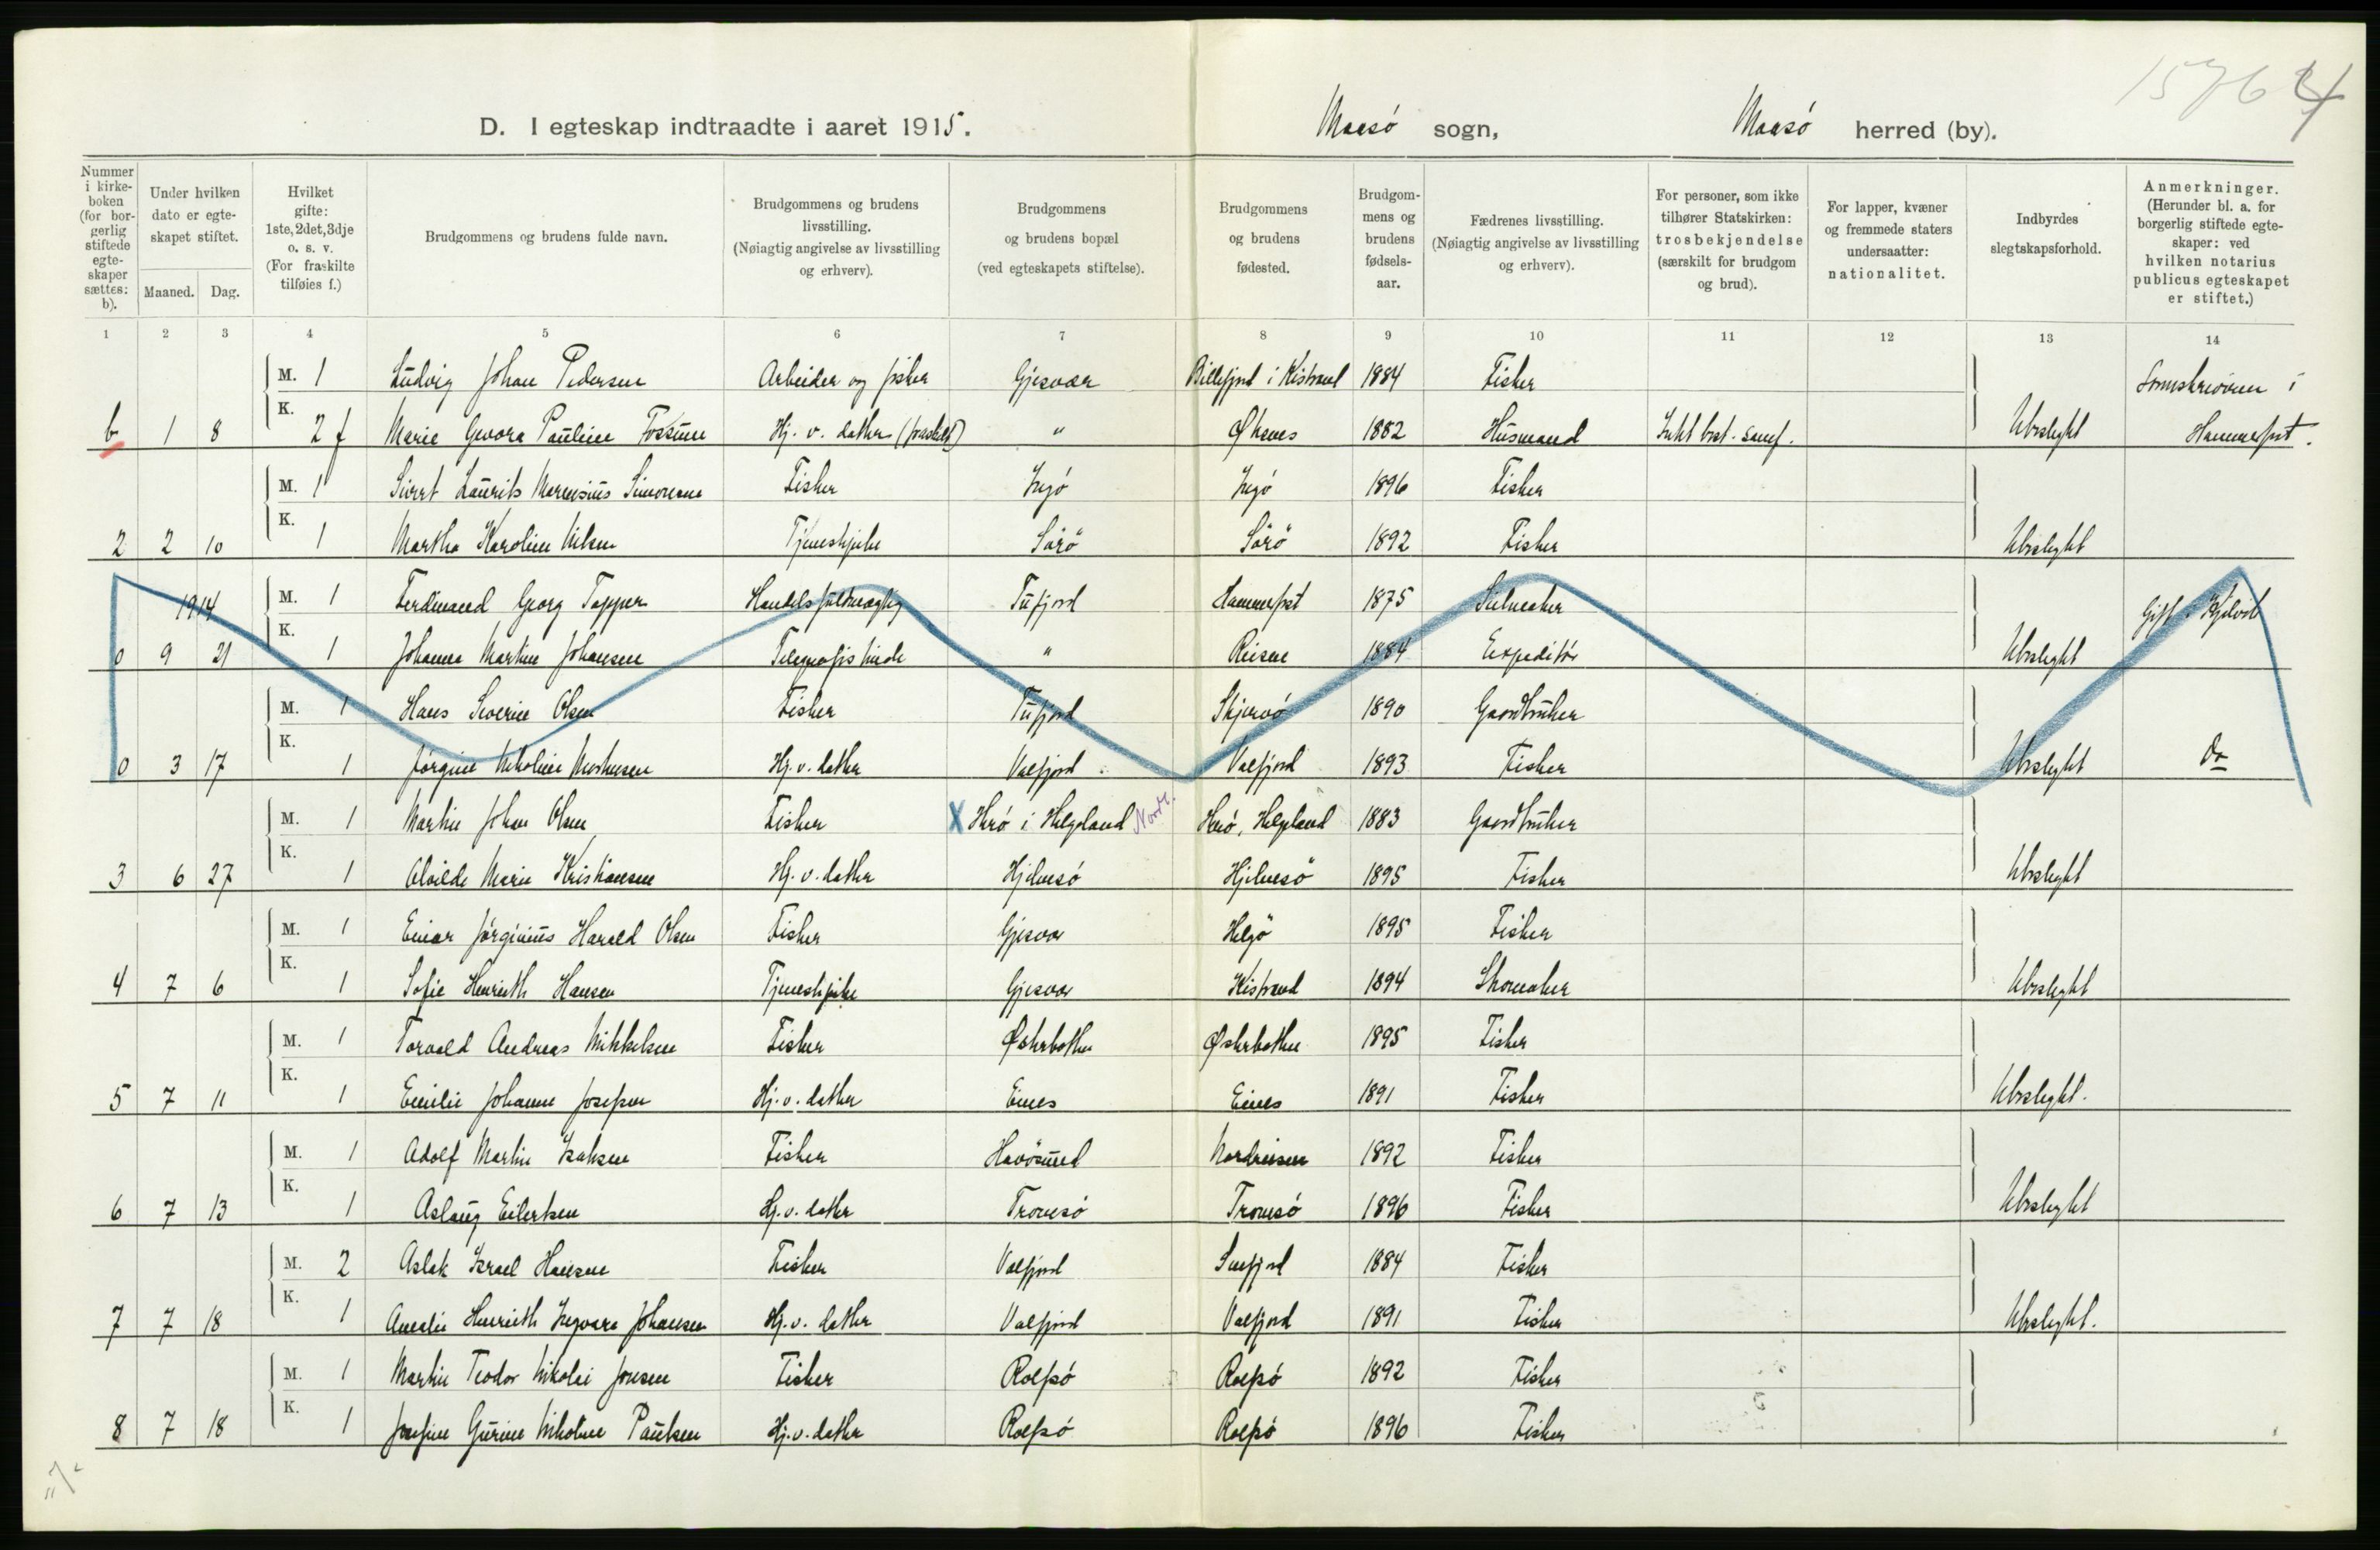 15764
D. I egteskap indtraadte i aaret 1915. Maasö sogn, Maasö herred (by).
Nummer i kirke- boken (for bor- gerlig stiftede egte- skaper sættes: b).
Under hvilken dato er egte- skapet stiftet.
Maaned. Dag.
Hvilket gifte: 1ste, 2det, 3dje o. s. v. (For fraskilte tilføies f.)
Brudgommens og brudens fulde navn.
Brudgommens og brudens livsstilling. (Nøiagtig angivelse av livsstilling og erhverv).
Brudgommens og brudens bopæl (ved egteskapets stiftelse).
Brudgommens og brudens fødested.
Brudgom- mens og brudens fødsels- aar.
Fædrenes livsstilling. (Nøiagtig angivelse av livsstilling og erhverv).
For personer, som ikke tilhører Statskirken: trosbekjendelse (særskilt for brudgom og brud).
For lapper, kvæner og fremmede staters undersaatter: nationalitet.
Indbyrdes slegtskapsforhold.
Anmerkninger. (Herunder bl. a. for borgerlig stiftede egte- skaper: ved hvilken notarius publicus egteskapet er stiftet.)
1 2 3 4 5 6 7 8 9 10 11 12 13 14
M. 1 Ludvig Johan Pedersen Arbeider og fisker Gjesvær Billefjord i Kistrand 1884 Fisker Sorenskriveren i
b 1 8 K. 2 f Marie Gevora Pauline Fossum Hj. v. datter (fraskilt) " Øksnes 1882 Husmand Ubeslegtet Hammerfest.
M. 1 Sivert Laurits Marensius Simonsen Fisker Ingö Ingö 1896 Fisker
2 2 10 K. 1 Martha Karoline Nilsen Tjenestepike Sörö Sörö 1892 Fisker Ubeslegtet
1914 M. 1 Ferdinand Georg Tapper Handelsfuldmægtig Tufjord Hammerfest 1875 Gift i
0 9 21 K. 1 Johanna Martine Johansen Telegrafistinde " Reisen 1884 Expeditör Ubeslegtet
M. 1 Hans Severin Olsen Fisker Tufjord Skjervö 1890 Gaardbruker
0 3 17 K. 1 Jörgine Nikoline Hj. v. datter Valfjord Valfjord 1893 Fisker Ubeslegtet Do
M. 1 Martin Johan Olsen Fisker X Herö i Helgeland Nordl. Herö, Helgeland 1883 Gaardbruker
3 6 27 K. 1 Alvilde Marie Kristiansen Hj. v. datter Hjelmsö Hjelmsö 1895 Fisker Ubeslegtet
M. 1 Einar Jörginius Harald Olsen Fisker Gjesvær Helgö 1895 Fisker
4 7 6 K. 1 Sofie Henriette Hansen Tjenestepike Gjesvær Kistrand 1894 Skomaker Ubeslegtet
M. 1 Torvald Andreas Mikkelsen Fisker Østerbotten Østerbotten 1895 Fisker
5 7 11 K. 1 Emilie Johanne Josefsen Hj. v. datter Eines Eines 1891 Fisker Ubeslegtet.
M. 1 Adolf Martin Isaksen Fisker Havösund Nordreisen 1892 Fisker
6 7 13 K. 1 Aslaug Eilertsen Hj. v. datter Tromsö Tromsö 1896 Fisker Ubeslegtet
M. 2 Aslak Israel Hansen Fisker Valfjord Snefjord 1884 Fisker
7 7 18 K. 1 Amalie Henriette Ingvara Johansen Hj. v. datter Valfjord Valfjord 1891 Fisker Ubeslegtet.
M. 1 Martin Teodor Nikolai Jensen Fisker Rolfsö Rolfsö 1892 Fisker
8 7 18 K. 1 Josefine Gurine Nikoline Paulsen Hj. v. datter Rolfsö Rolfsö 1896 Fisker